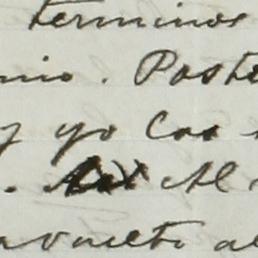 terminos
nio. Poste
y yo las
. Al
vuelto al